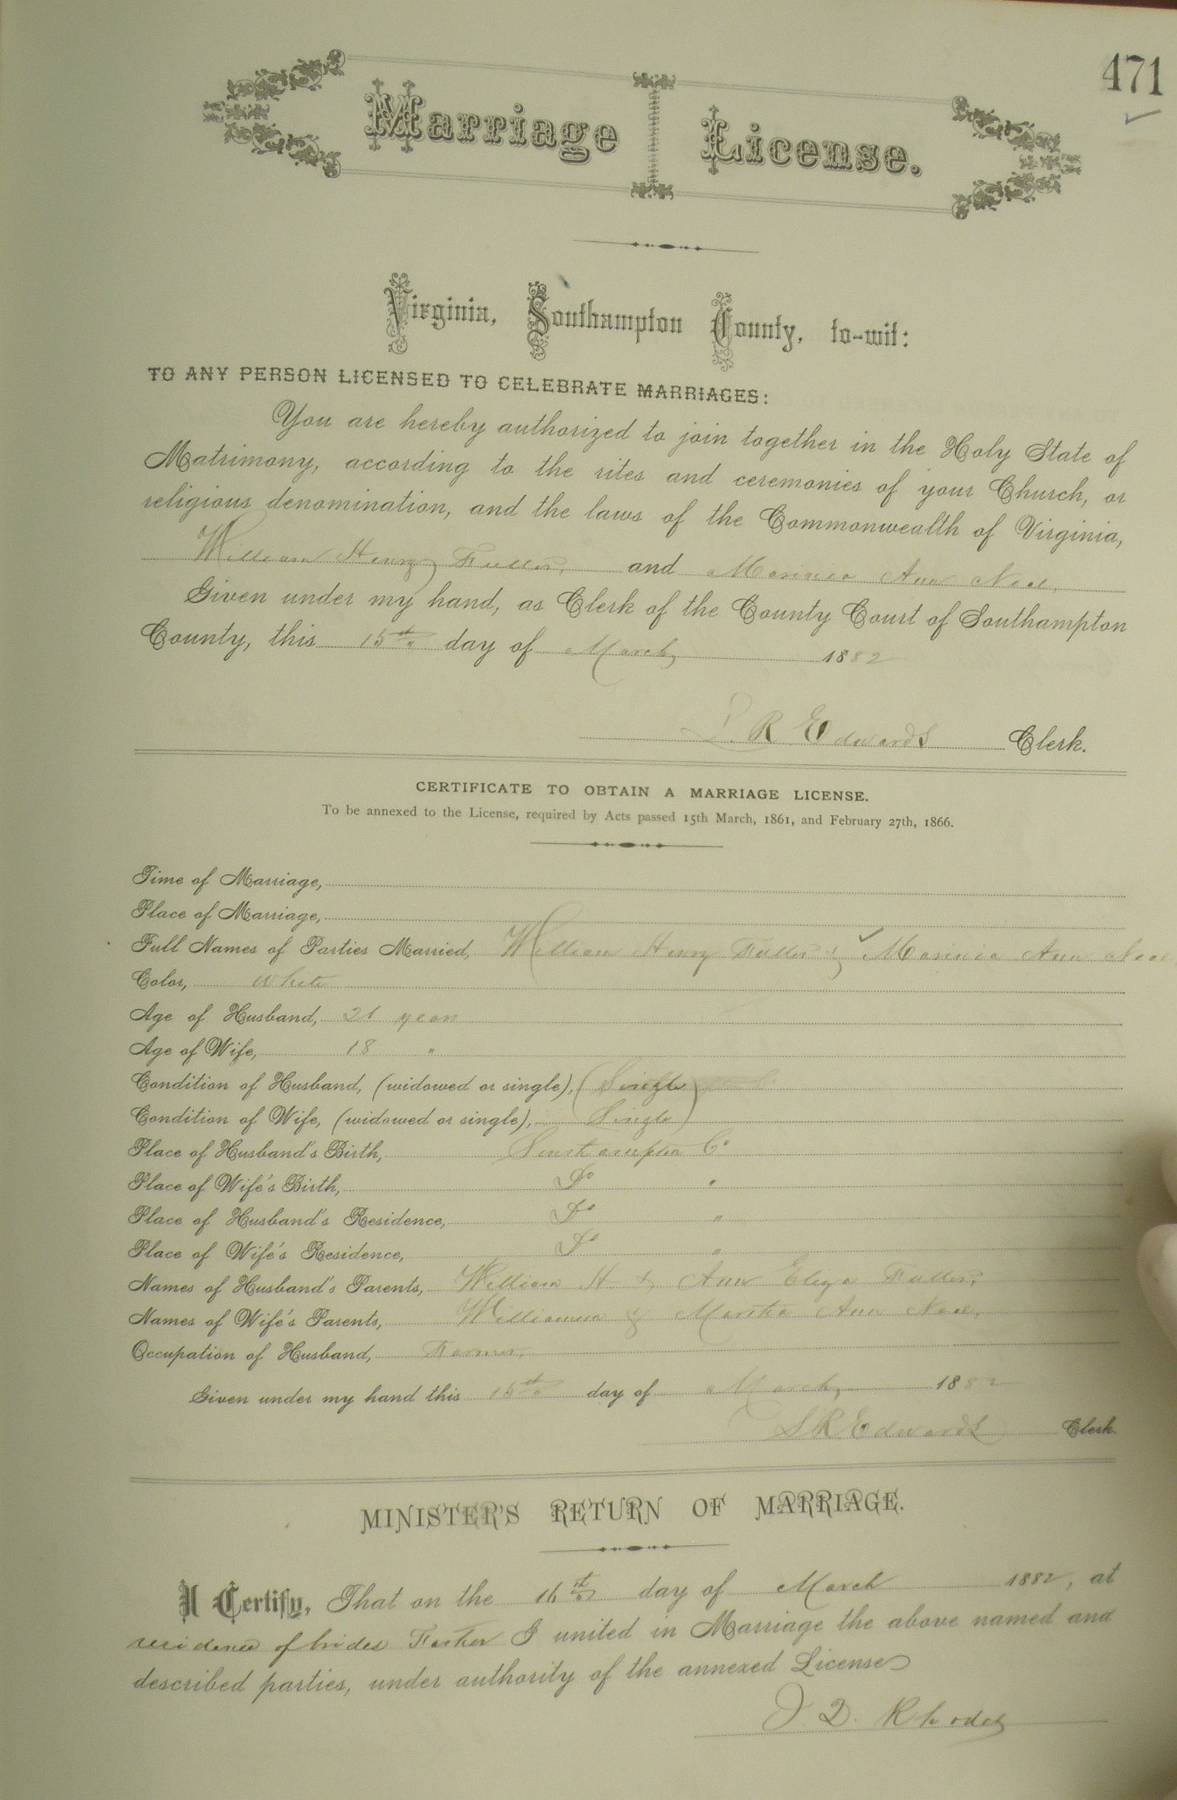 471
Marriage License.
Virginia, Southampton County, to-wit:
TO ANY PERSON LICENSED TO CELEBRATE MARRIAGES:
You are hereby authorized to join together in the Holy State of
Matrimony, according to the rites and ceremonies of your Church, or
religious denomination, and the laws of the Commonwealth of Virginia,
William Henry Fuller, and Ann
Given under my hand, as Clerk of the County Court of Southampton
County, this 15th day of March 1882
R Edwards Clerk.
CERTIFICATE TO OBTAIN A MARRIAGE LICENSE.
To be annexed to the License, required by Acts passed 15th March, 1861, and February 27th, 1866.
Time of Marriage,
Place of Marriage,
Full Names of Parties Married, William Henry Fuller & Ann
Color, White
Age of Husband, 21 years
Age of Wife, 18 "
Condition of Husband, (widowed or single), (Single
Condition of Wife, (widowed or single), Single)
Place of Husband's Birth, Southampton Co
Place of Wife's Birth, Do "
Place of Husband's Residence, Do "
Place of Wife's Residence, Do "
Names of Husband's Parents, William H & Ann Eliza Fuller,
Names of Wife's Parents, & Martha Ann
Occupation of Husband, Farmer,
Given under my hand this 15th day of March, 1882
R Edwards Clerk
MINISTER'S RETURN OF MARRIAGE.
I Certify, That on the 16th day of March 1882, at
residence of brides Father I united in Marriage the above named and
described parties, under authority of the annexed License
J. D. Rhodes